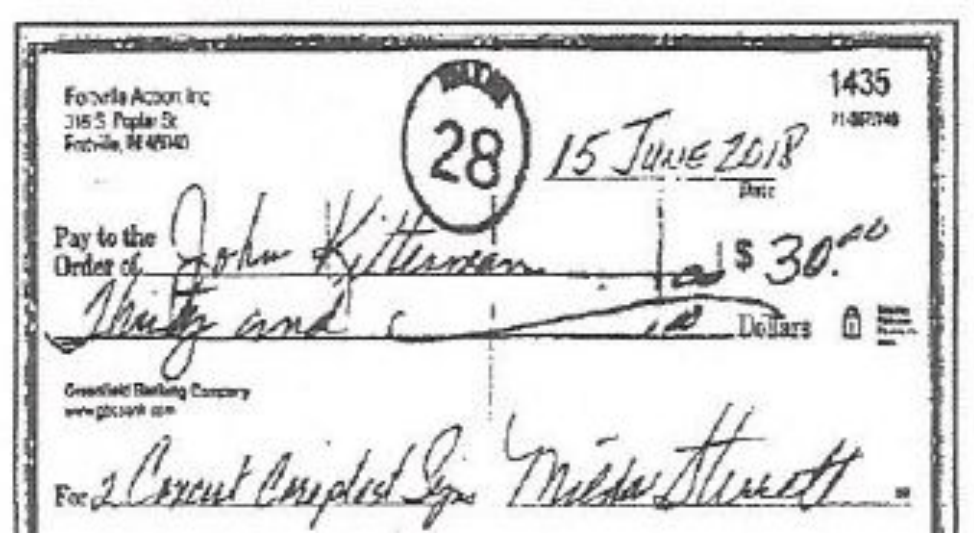 1435
Fortville Action Inc
316 S. Poplar St
Fortville, IN 46040
28
15 JUNE 2018
Date
Pay to the
Order of John Kitterman $ 30.00
Thirty and Dollars
Greenfield Banking Company
www.gbcbank.com
For 2 Coroplast Signs